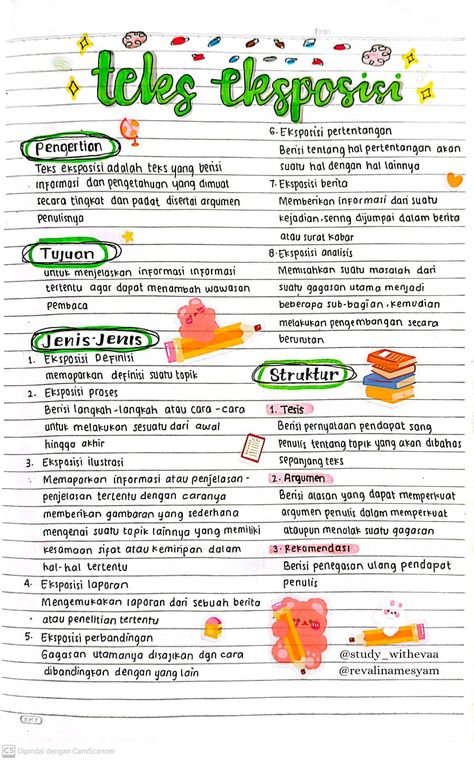 teks eksposisi
Pengertian
Teks eksposisi adalah teks yang berisi
informasi dan pengetahuan yang dimuat
secara tingkat dan padat disertai argumen
penulisnya
Tujuan
untuk menjelaskan informasi informasi
tertentu agar dapat menambah wawasan
Pembaca
Jenis-Jenis
1. Eksposisi Definisi
memaparkan definisi suatu topik
2. Eksposisi proses
Berisi langkah-langkah atau cara-cara
untuk melakukan sesuatu dari awal
hingga akhir
3. Eksposisi ilustrasi
Memaparkan informasi atau penjelasan-
penjelasan tertentu dengan caranya
memberikan gambaran yang sederhana
mengenai suatu topik lainnya yang memiliki
kesamaan sipat atau kemiripan dalam
hal-hal tertentu
4. Eksposisi laporan
Mengemukakan laporan dari sebuah berita
atau penelitian tertentu
5. Eksposisi perbandingan
Gagasan utamanya disajikan dgn cara
dibandingkan dengan yang lain
6. Eksposisi pertentangan
Berisi tentang hal pertentangan akan
suatu hal dengan hal lainnya
7. Eksposisi berita
Memberikan informasi dari suatu
kejadian, senng dijumpai dalam berita
atau surat kabar
8. Eksposisi analisis
Memisahkan suatu masalah dari
suatu gagasan utama menjadi
beberapa sub-bagian, kemudian
melakukan pengembangan secara
berurutan
Struktur
1. Tesis
Berisi pernyataan pendapat sang
penulis tentang topik yang akan dibahas
sepanjang teks
2. Argumen
Berisi alasan yang dapat memperkuat
argumen penulis dalam memperkuat
ataupun menolak suatu gagasan
3. Rekomendasi
Berisi penegasan ulang pendapat
penulis
@study_withevaa
@revalinamesyam
CS Dipindai dengan CamScanner